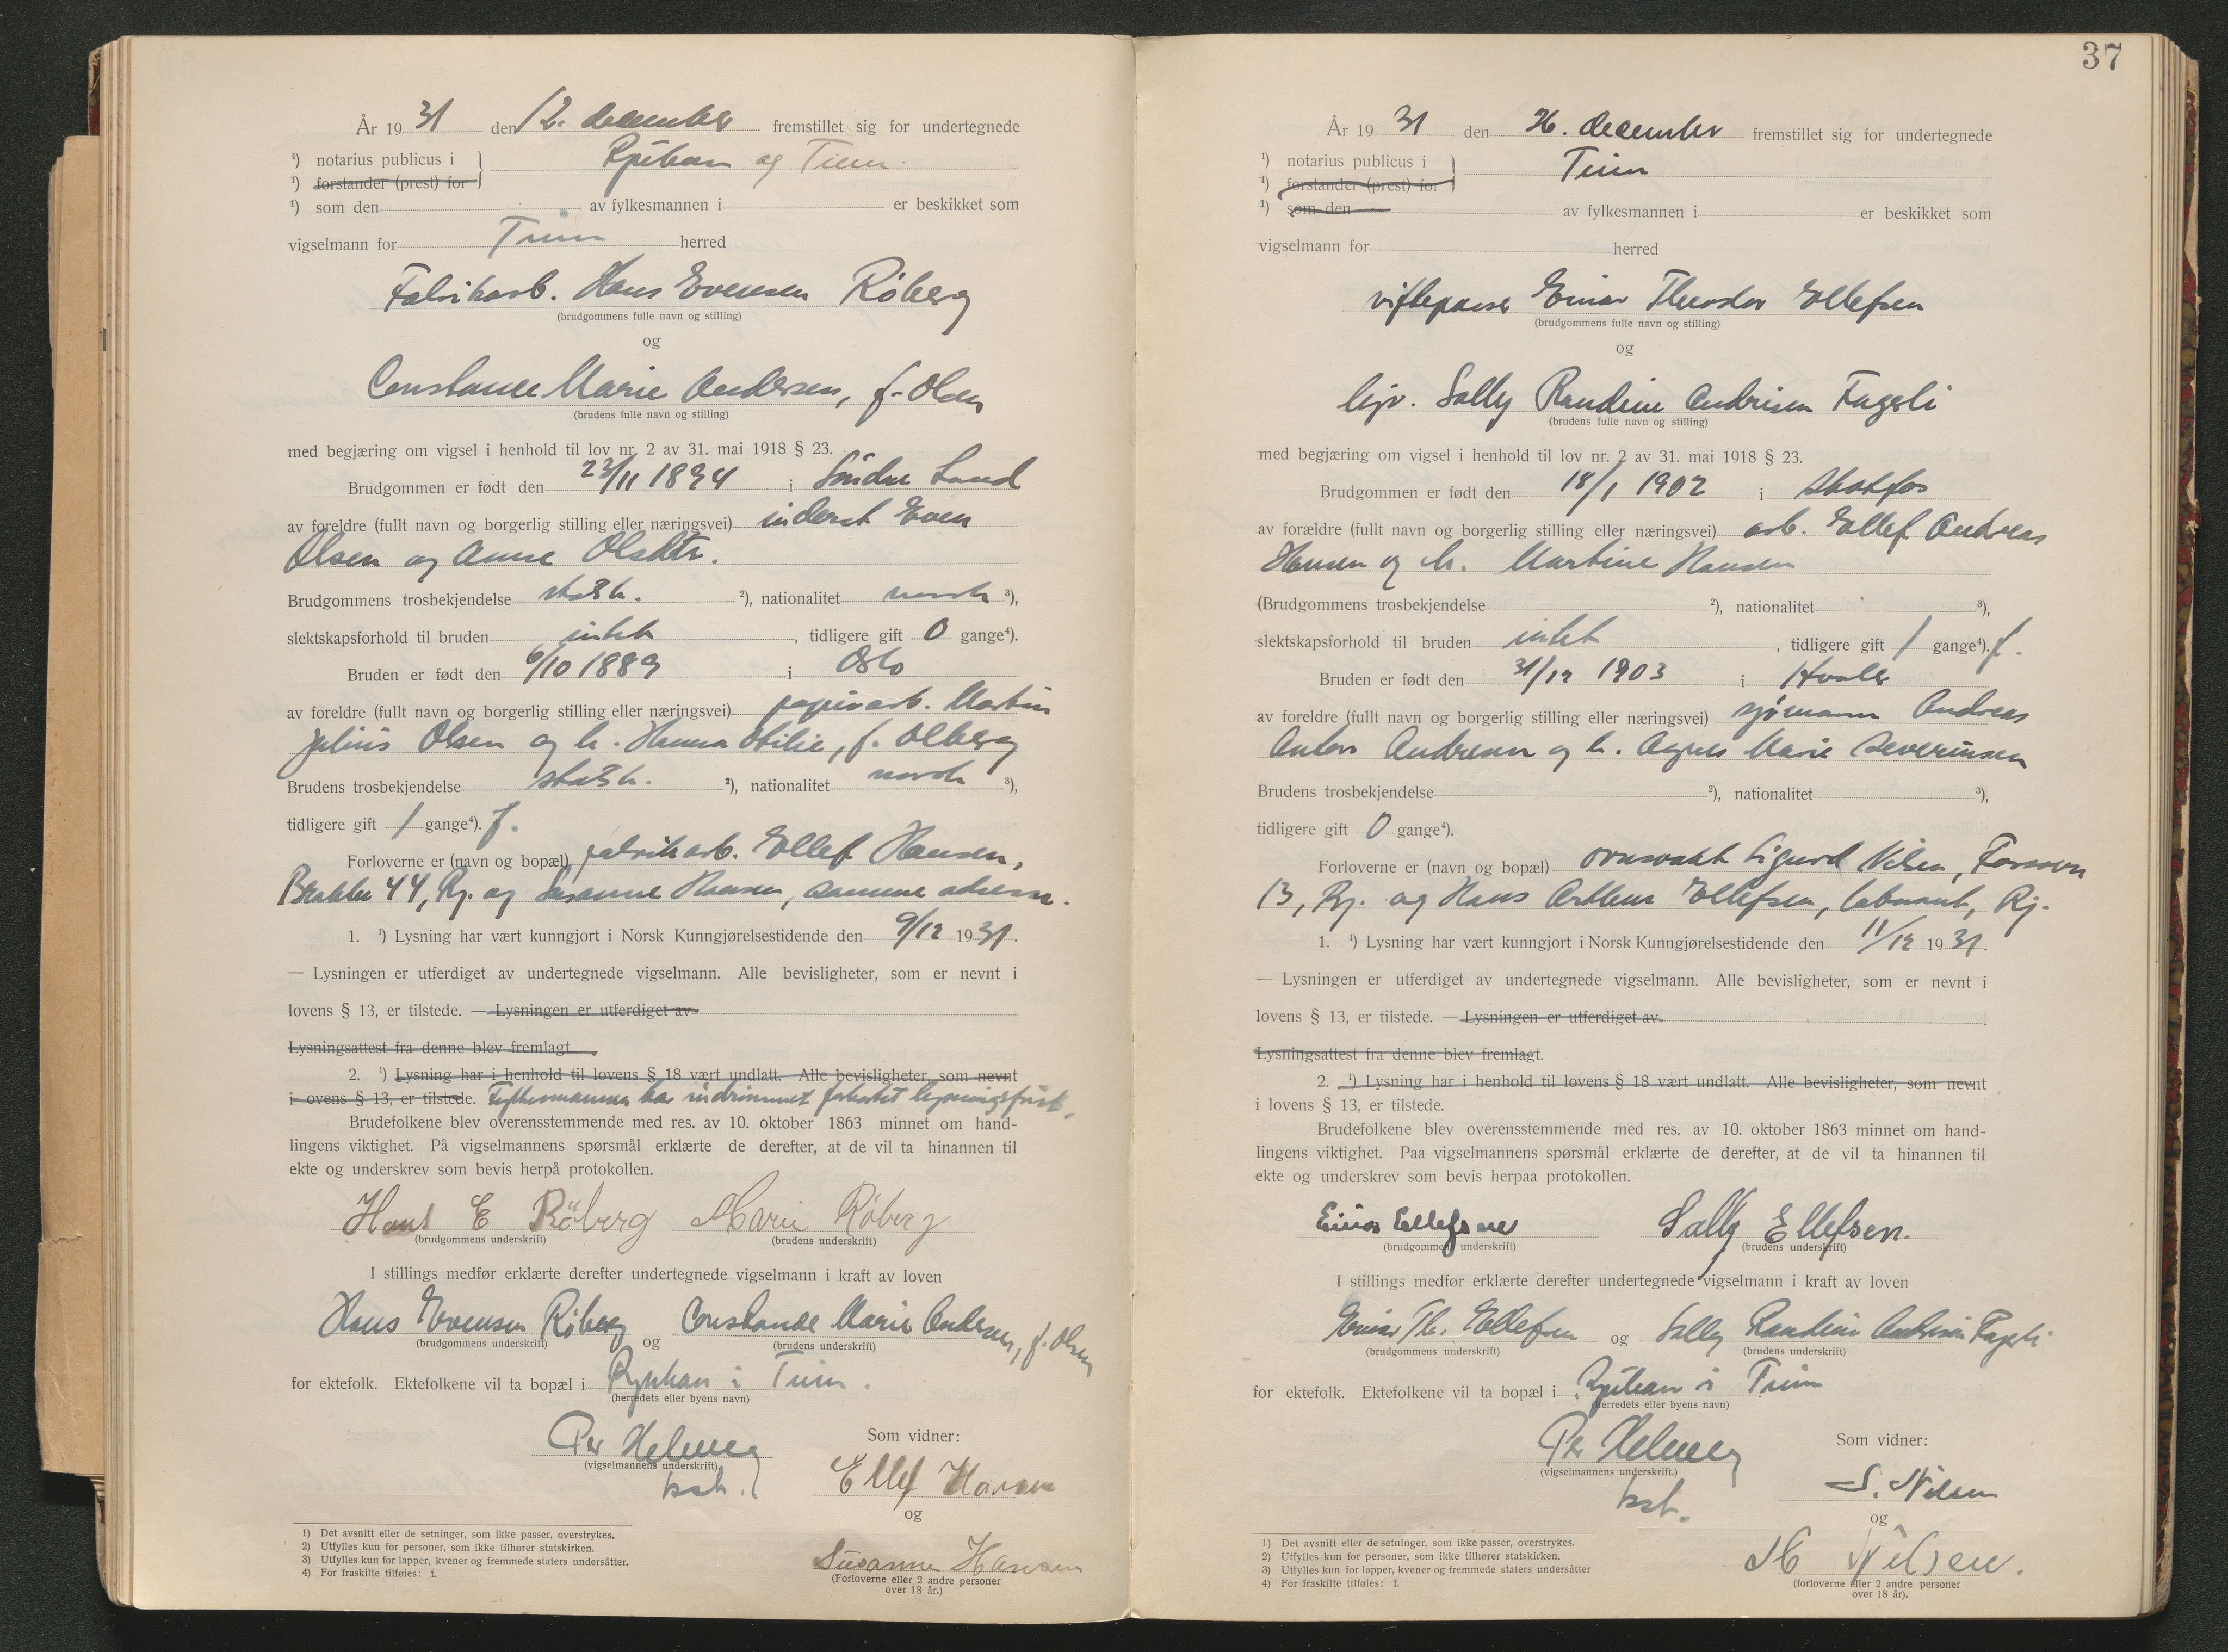 År 19 31 den 12. december fremstillet sig for undertegnede
¹) notarius publicus i } Rjukan og Tinn.
¹) forstander (prest) for
¹) som den av fylkesmannen i er beskikket som
vigselmann for Tinn herred
Fabrikarb. Hans Evensen Røberg
(brudgommens fulle navn og stilling)
og
Constance Marie Andersen, f. Olsen
(brudens fulle navn og stilling)
med begjæring om vigsel i henhold til lov nr. 2 av 31. mai 1918 § 23.
Brudgommen er født den 23/11 1894 i Søndre Land
av foreldre (fullt navn og borgerlig stilling eller næringsvei) inderst Even
Olsen og Anne Olsdtr.
Brudgommens trosbekjendelse statsk. ²), nationalitet norsk ³),
slektskapsforhold til bruden intet, tidligere gift 0 gange⁴).
Bruden er født den 6/10 1889 i Oslo
av foreldre (fullt navn og borgerlig stilling eller næringsvei) papirarb. Martin
Julius Olsen og h. Hanna Otilie, f. Olberg
Brudens trosbekjendelse statsk. ²), nationalitet norsk ³),
tidligere gift 1 gange⁴). f.
Forloverne er (navn og bopæl) fabrikarb. Ellef Hansen,
44, Rj. og Susanne Hansen, samme adresse.
1. ¹) Lysning har vært kunngjort i Norsk Kunngjørelsestidende den 9/12 1931.
— Lysningen er utferdiget av undertegnede vigselmann. Alle bevisligheter, som er nevnt i
lovens § 13, er tilstede. — Lysningen er utferdiget av
Lysningsattest fra denne blev fremlagt.
2. ¹) Lysning har i henhold til lovens § 18 vært undlatt. Alle bevisligheter, som nevnt
i lovens § 13, er tilstede. Fylkesmannen har indrømmet forkortet lysningsfrist.
Brudefolkene blev overensstemmende med res. av 10. oktober 1863 minnet om hand-
lingens viktighet. På vigselmannens spørsmål erklærte de derefter, at de vil ta hinannen til
ekte og underskrev som bevis herpå protokollen.
Hans E Røberg Marie Røberg
(brudgommens underskrift) (brudens underskrift)
I stillings medfør erklærte derefter undertegnede vigselmann i kraft av loven
Hans Evensen Røberg og Constance Marie Andersen, f. Olsen
(brudgommens underskrift) (brudens underskrift)
for ektefolk. Ektefolkene vil ta bopæl i Rjukan i Tinn.
(herredets eller byens navn)
Per Som vidner:
(vigselmannens underskrift)
Ellef Hansen
og
Susanne Hansen
(Forloverne eller 2 andre personer
over 18 år.)
1) Det avsnitt eller de setninger, som ikke passer, overstrykes.
2) Utfylles kun for personer, som ikke tilhører statskirken.
3) Utfylles kun for lapper, kvener og fremmede staters undersåtter.
4) For fraskilte tilføies: f.
37
År 19 31 den 26. december fremstillet sig for undertegnede
¹) notarius publicus i } Tinn
¹) forstander (prest) for
¹) som den av fylkesmannen i er beskikket som
vigselmann for herred
viftepasser Einar Theodor Ellefsen
(brudgommens fulle navn og stilling)
og
Sally Randine Andrisen Fagerli
(brudens fulle navn og stilling)
med begjæring om vigsel i henhold til lov nr. 2 av 31. mai 1918 § 23.
Brudgommen er født den 18/1 1902 i Skotfos
av forældre (fullt navn og borgerlig stilling eller næringsvei) arb. Ellef Andreas
Hansen og h. Martine Hansen
(Brudgommens trosbekjendelse ²), nationalitet ³),
slektskapsforhold til bruden intet, tidligere gift 1 gange⁴). f.
Bruden er født den 31/12 1903 i Hvaler
av foreldre (fullt navn og borgerlig stilling eller næringsvei) sjømann Andreas
Anton Andresen og h. Agnes Marie Severinsen
Brudens trosbekjendelse ²), nationalitet ³),
tidligere gift 0 gange⁴).
Forloverne er (navn og bopæl) ovnsvakt Sigurd Nilsen,
13, Rj. og Hans Arthur Ellefsen, Rj.
1. ¹) Lysning har vært kunngjort i Norsk Kunngjørelsestidende den 11/12 1931.
— Lysningen er utferdiget av undertegnede vigselmann. Alle bevisligheter, som er nevnt i
lovens § 13, er tilstede. — Lysningen er utferdiget av
Lysningsattest fra denne blev fremlagt.
2. ¹) Lysning har i henhold til lovens § 18 vært undlatt. Alle bevisligheter, som nevnt
i lovens § 13, er tilstede.
Brudefolkene blev overensstemmende med res. av 10. oktober 1863 minnet om hand-
lingens viktighet. Paa vigselmannens spørsmål erklærte de derefter, at de vil ta hinannen til
ekte og underskrev som bevis herpaa protokollen.
Einar Ellefsen Sally Ellefsen.
(brudgommens underskrift) (brudens underskrift)
I stillings medfør erklærte derefter undertegnede vigselmann i kraft av loven
Einar Th. Ellefsen og Sally Randine Andrisen Fagerli
(brudgommens underskrift) (brudens underskrift)
for ektefolk. Ektefolkene vil ta bopæl i Rjukan i Tinn
(herredets eller byens navn)
Per Som vidner:
(vigselmannens underskrift.)
S. Nilsen
og
M Nilsen.
(forloverne eller 2 andre personer
over 18 år).
1) Det avsnitt eller de setninger, som ikke passer, overstrykes.
2) Utfylles kun for personer, som ikke tilhører statskirken.
3) Utfylles kun for lapper, kvener og fremmede staters undersåtter
4) For fraskilte tilføies: f.